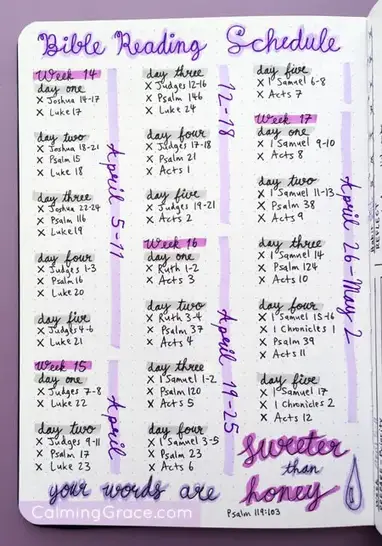 Bible Reading Schedule
Week 14
day one
x Joshua 14-17
x Luke 17
day two
x Joshua 18-21
x Psalm 15
x Luke 18
day three
x Joshua 22-24
x Psalm 116
x Luke 19
day four
x Judges 1-3
x Psalm 16
x Luke 20
day five
x Judges 4-6
x Luke 21
April 5-11
Week 15
day one
x Judges 7-8
x Luke 22
day two
x Judges 9-11
x Psalm 17
x Luke 23
April
day three
x Judges 12-16
x Psalm 146
x Luke 24
day four
x Judges 17-18
x Psalm 21
x Acts 1
day five
x Judges 19-21
x Acts 2
12-18
Week 16
day one
x Ruth 1-2
x Acts 3
day two
x Ruth 3-4
x Psalm 37
x Acts 4
day three
x 1 Samuel 1-2
x Psalm 120
x Acts 5
day four
x 1 Samuel 3-5
x Psalm 23
x Acts 6
April 19-25
day five
x 1 Samuel 6-8
x Acts 7
Week 17
day one
x 1 Samuel 9-10
x Acts 8
day two
x 1 Samuel 11-13
x Psalm 38
x Acts 9
day three
x 1 Samuel 14
x Psalm 124
x Acts 10
day four
x 1 Samuel 15-16
x 1 Chronicles 1
x Psalm 39
x Acts 11
day five
x 1 Samuel 17
x 1 Chronicles 2
x Acts 12
April 26-May 2
your words are
sweeter
than
honey
Psalm 119:103
CalmingGrace.com